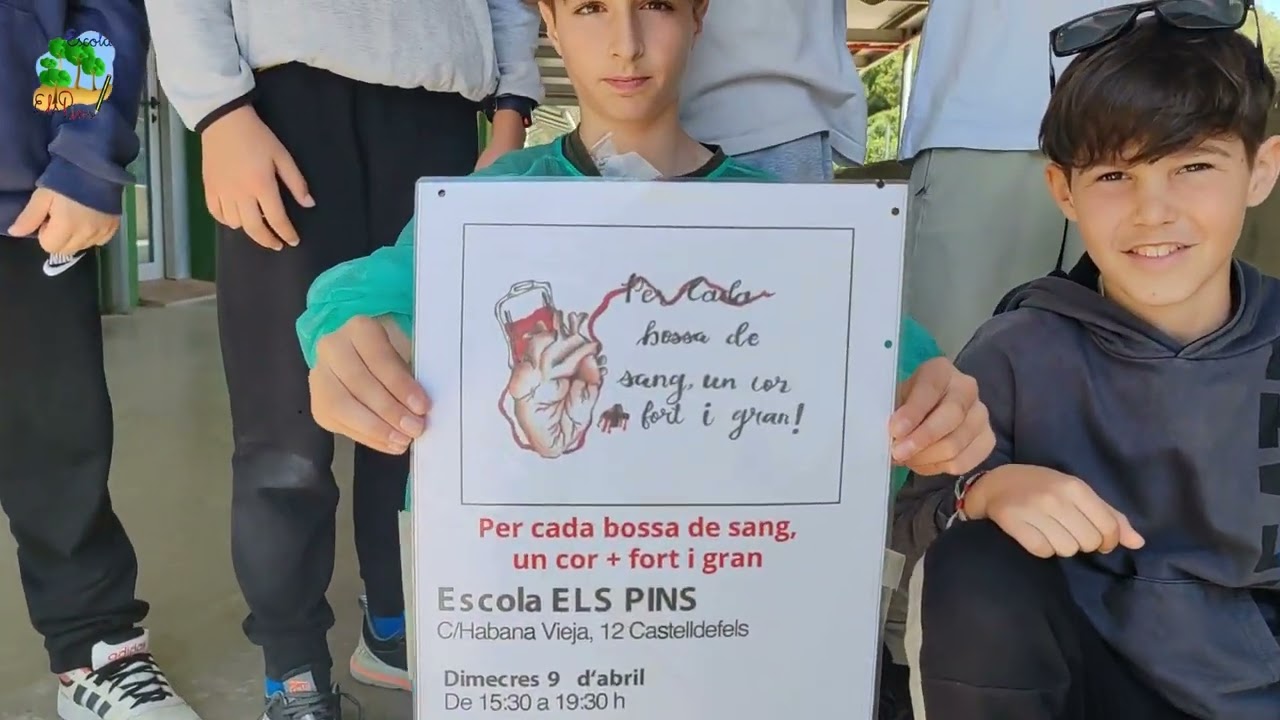 Escola
Per Cada
bossa de
sang, un cor
fort i gran!
Per cada bossa de sang,
un cor + fort i gran
Escola ELS PINS
C/Habana Vieja, 12 Castelldefels
Dimecres 9 d'abril
De 15:30 a 19:30 h
adidas